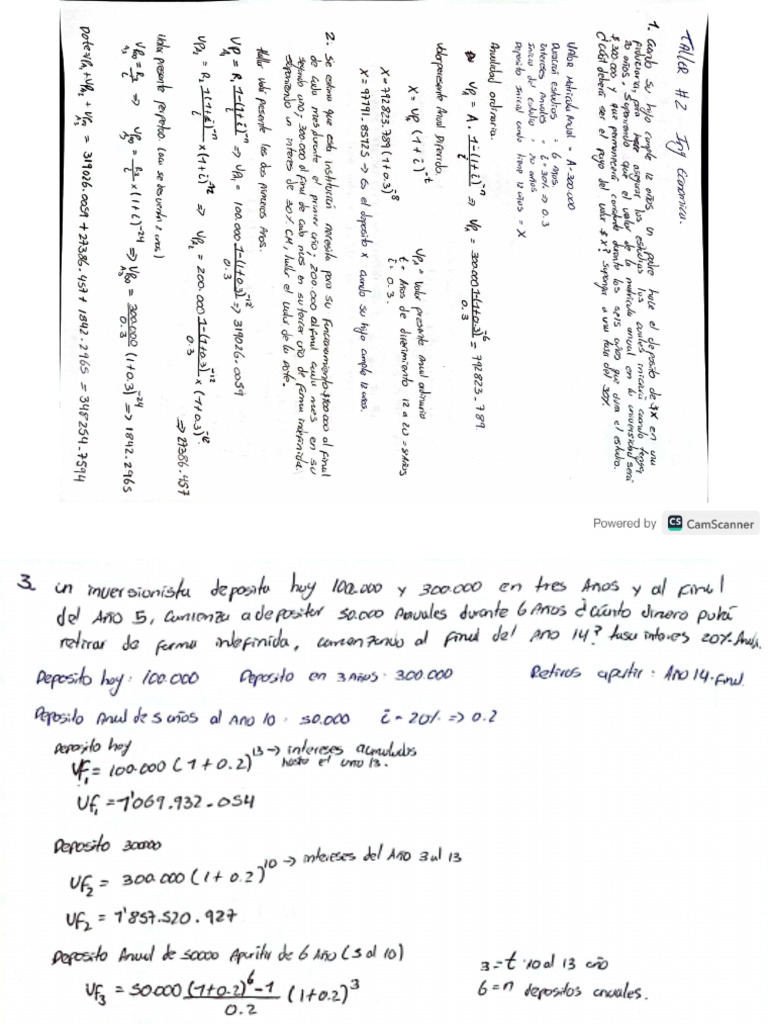 TALLER #2 Ing Economica.
1. Cuando su hijo cumple 12 años, un padre hace el deposito de $X en una
fiduciaria, para asegurar los estudios los cuales iniciará cuando tenga
20 años, suponiendo que el valor de la matricula anual en la universidad será
$300.000 y que permanecerá constante durante los seis años que dura el estudio.
¿Cuál deberá ser el pago del valor $X? Suponga a una tasa del 30%.
Valor Matricula Anual = A = 300.000
Duración estudios = 6 Años
intereses Anuales = i = 30% ⇒ 0.3
inicio del estudio = 20 años
Deposito inicial cuando tiene 12 años = X
Anualidad ordinaria.
VP = A . 1-(1+i)^-n / i ⇒ VP = 300.000 1-(1+0.3)^-6 / 0.3 = 792823-789
Valor presente Anual Diferido.
X = VP (1+i)^-t
VPA = Valor presente Anual ordinario
t = Años de diferimiento 12 a 20 = 8 Años
i = 0.3.
X = 792823.789 (1+0.3)^-8
X = 97191.85725 → Es el deposito X cuando su hijo cumple 12 años.
2. Se estima que esta institucion necesita para su funcionamiento $100.000 al final
de cada mes durante el primer año; 200.000 al final cada mes en su
segundo año; 300.000 al final de cada mes en su tercer año de forma indefinida.
suponiendo un interes de 30% CM, hallar el valor de la dote.
Hallar valor presente los dos primeros Años.
VP₁ = R₁ 1-(1+i)^-n / i ⇒ VP₁ = 100.000 1-(1+0.3)^-12 / 0.3 ⇒ 319026.0059
VP₂ = R₂ 1-(1+i)^-n / i x (1+i)^-12 ⇒ VP₂ = 200.000 1-(1+0.3)^-12 / 0.3 x (1+0.3)^-12 ⇒ 27386.457
Valor presente perpetuo
VP∞ = R₃ / i ⇒ VP∞ = R₃ / i x (1+i)^-24 ⇒ VP∞ = 300.000 / 0.3 (1+0.3)^-24 ⇒ 1842.2965
Dote = VP₁ + VP₂ + VP∞ = 319026.0059 + 27386.457 + 1842.2965 = 348254.7594
Powered by CS CamScanner
3. un inversionista deposita hoy 100.000 y 300.000 en tres Años y al final
del Año 5, comienza a depositar 50.000 Anuales durante 6 Años ¿cuánto dinero podrá
retirar de forma indefinida, comenzando al final del Año 14? tasa interes 20% Anual.
Deposito hoy: 100.000 Deposito en 3 Años: 300.000 Retiros apartir: Año 14-final
Deposito Anual de 5 años al Año 10: 50.000 i = 20% => 0.2
Deposito hoy
VF₁ = 100.000 (1+0.2)^13 → intereses acumulados
hasta el año 13.
VF₁ = 1'069.932-054
Deposito 300000
VF₂ = 300.000 (1+0.2)^10 → intereses del Año 3 al 13
VF₂ = 1'857.520.927
Deposito Anual de 50000 Apartir de 6 Año (5 al 10)
VF₃ = 50.000 (1+0.2)^6 - 1 / 0.2 (1+0.2)^3
3 = t 10 al 13 año
6 = n depositos anuales.